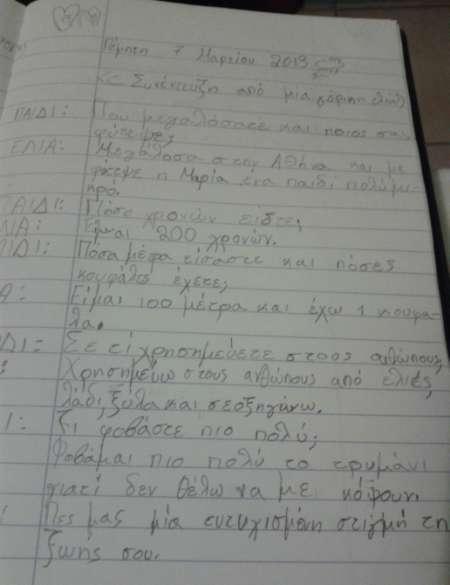 Πέμπτη 7 Μαρτίου 2013
<< Συνέντευξη από μια γέρικη ελιά
ΠΑΙΔΙ: Που μεγαλόσατε και ποιος σας
φύτεψε;
ΕΛΙΑ: Μεγάλοσα στην Αθήνα και με
φύτεψε η Μαρία ένα παιδί πολύ μι-
κρό.
ΑΙΔΙ: Πόσο χρονών είστε;
ΛΙΑ: Είμαι 200 χρονών.
ΙΔΙ: Πόσα μέτρα είσαστε και πόσες
κουφάλες έχετε;
Α: Είμαι 100 μέτρα και έχω 1 κουφά-
λα.
ΔΙ: Σε τί χρησημεύετε στους αθώπους;
Χρησημεύω στους ανθώπους από ελιές,
λάδι, ξύλα και
Ι: Τι φοβάστε πιο πολύ;
Φοβάμαι πιο πολύ το τρυμάνι
γιατί δεν θέλω να με κόψουν.
Πες μας μία ευτυχισμένη στιγμή τη
ζωης σου.